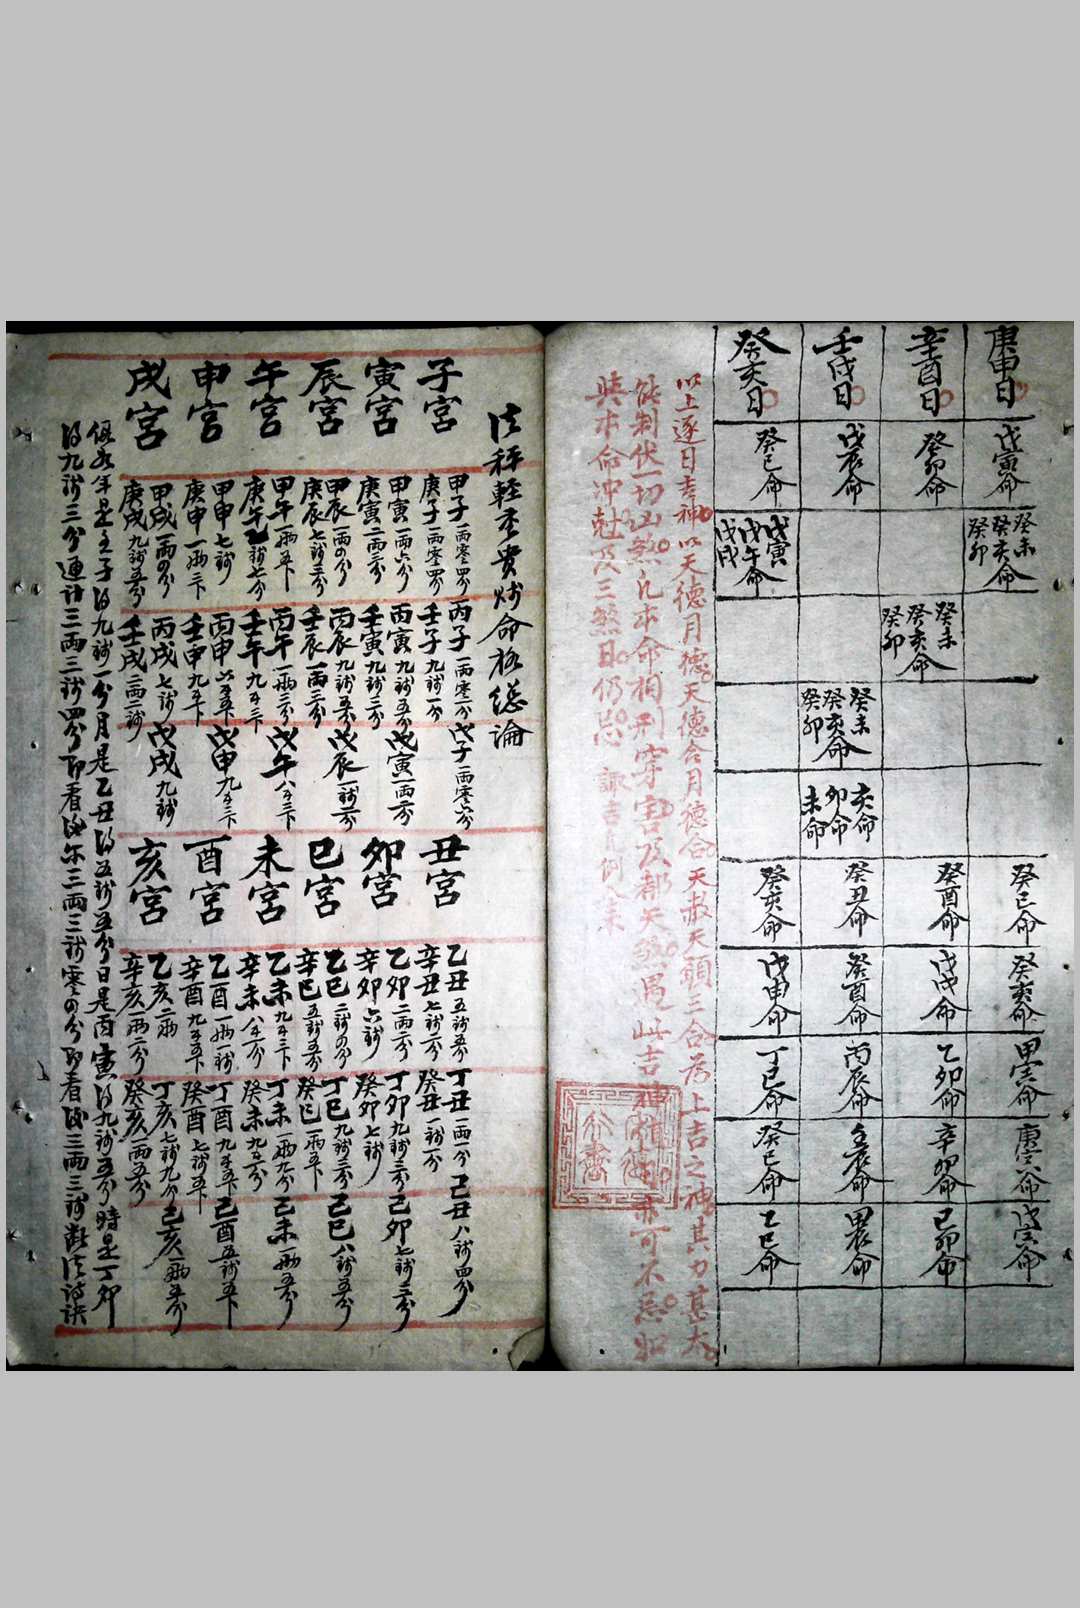 庚申日
戊寅命
癸未
癸亥命
癸卯
癸巳命
癸亥命
甲寅命
庚寅命
戊寅命
辛酉日
癸卯命
癸未
癸亥命
癸卯
癸酉命
戊戌命
乙卯命
辛卯命
己卯命
壬戌日
戊辰命
癸未
癸亥命
癸卯
亥命
卯命
未命
癸丑命
癸酉命
丙辰命
壬辰命
甲辰命
癸亥日
癸巳命
戊寅
戊午命
戊戌
癸亥命
戊申命
丁巳命
癸巳命
乙巳命
以上逐日吉神以天德月德天德合月德合天赦天願三合為上吉之神其力甚大
能制伏一切凶煞凡本命相刑穿害及都天煞遇此吉神亦可不忌如
與本命冲尅及三煞日仍忌 諏吉凡例
法秤輕重貴賤命格總論
子宮
甲子一兩零四分
丙子一兩零二分
戊子一兩零六分
庚子一兩零四分
壬子九錢一分
寅宮
甲寅一兩六分
丙寅九錢五分
戊寅一兩一分
庚寅一兩三分
壬寅九錢三分
辰宮
甲辰一兩〇分
丙辰九錢五分
戊辰一錢一分
庚辰七錢三分
壬辰一兩三分
午宮
甲午一兩五卜
丙午一兩三分
戊午八錢三卜
庚午乙錢七分
壬午九錢三卜
申宮
甲申七錢
丙申
戊申九錢三卜
庚申一兩三卜
壬申九錢五卜
戌宮
甲戌一兩〇分
丙戌七錢
戊戌九錢
庚戌九錢五分
壬戌一兩二錢
丑宮
乙丑五錢五分
丁丑一兩一分
己丑八錢四分
辛丑七錢一分
癸丑一錢一分
卯宮
乙卯二兩一分
丁卯九錢三分
己卯七錢三分
辛卯六錢
癸卯七錢
巳宮
乙巳二錢〇分
丁巳九錢三分
己巳八錢五分
辛巳五錢五分
癸巳一兩五卜
未宮
乙未九錢三卜
丁未一兩九分
己未一兩五分
辛未八錢一分
癸未九錢六分
酉宮
乙酉一兩一錢
丁酉九錢五卜
己酉五錢五卜
辛酉九錢五卜
癸酉七錢五卜
亥宮
乙亥二兩
丁亥七錢九分
己亥一兩五分
辛亥一兩二分
癸亥一兩五分
假如年是壬子得九錢一分月是乙丑得五錢五分日是丙寅得九錢五分時是丁卯
得九錢三分連計三兩三錢四分即看後三兩三錢零〇分即看後三兩三錢斷法詩訣